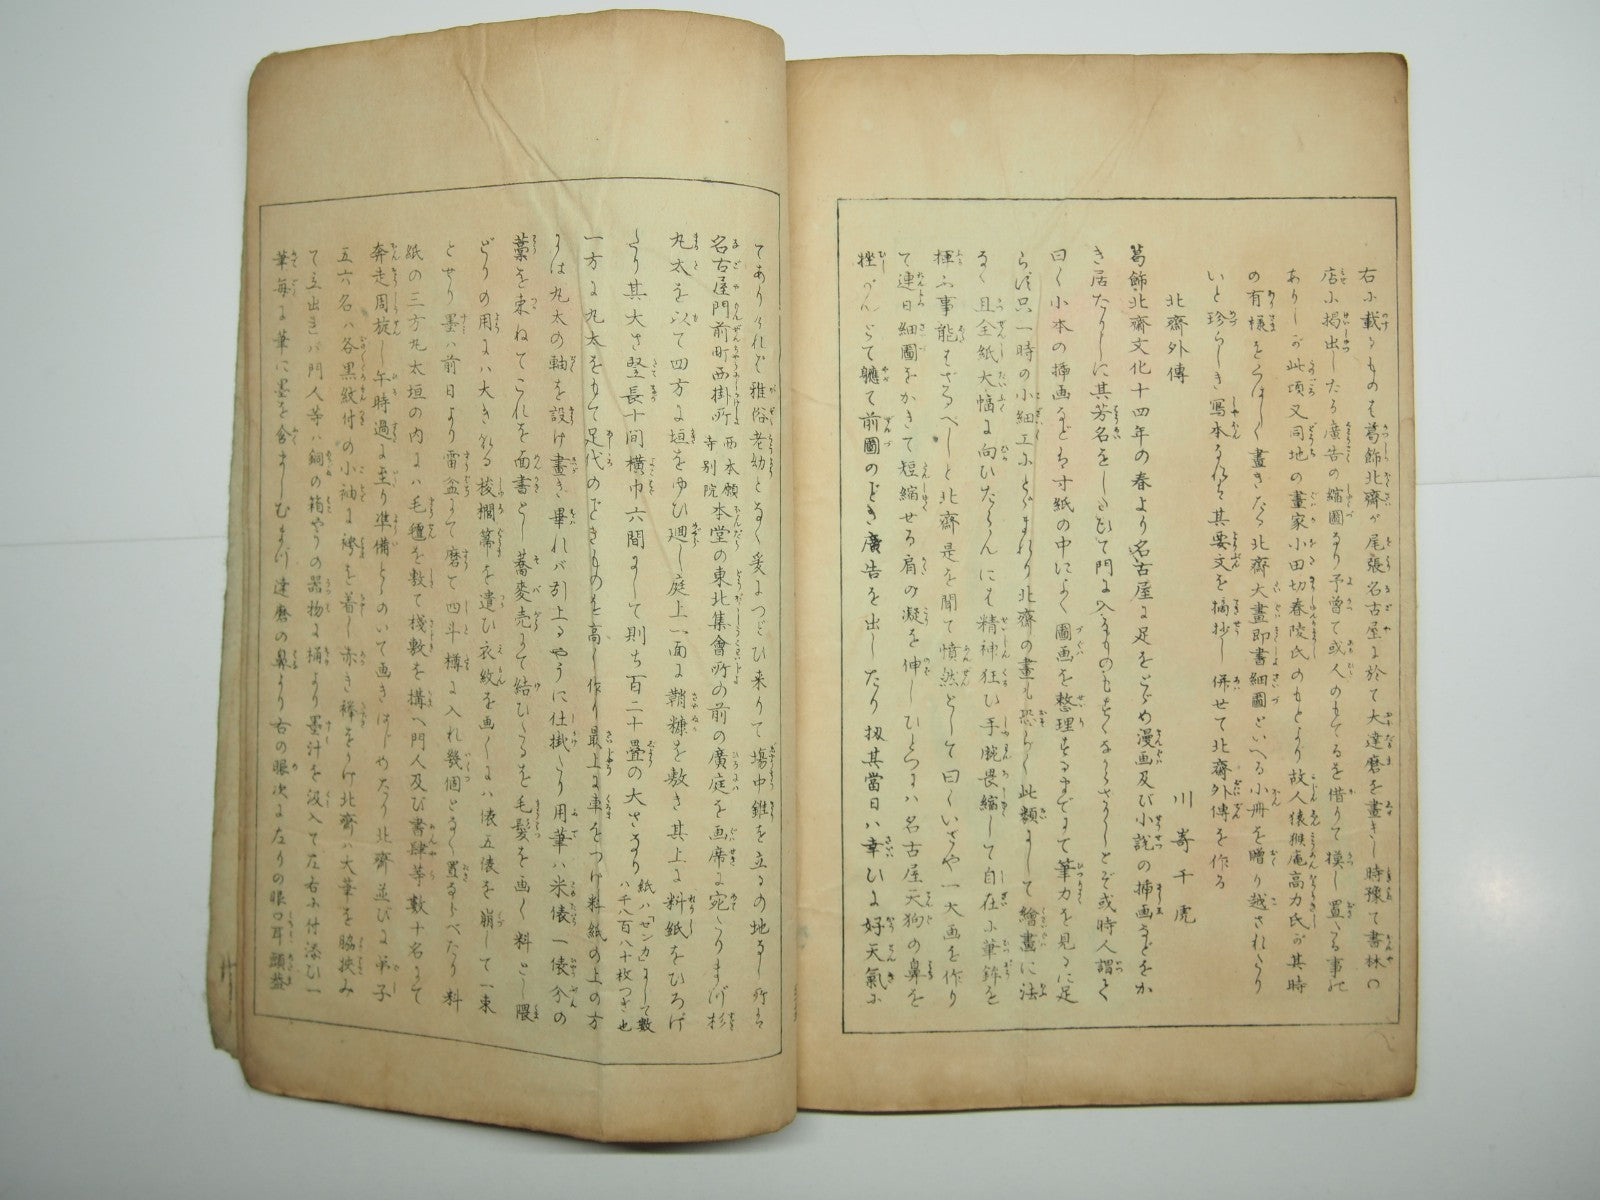 右に載るものは葛飾北齋が尾張名古屋に於て大達磨を畫きし時豫て書林の
店に掲出したる廣告の縮圖なり予曽て或人のもてるを借りて模し置たる事
ありしが此頃又同地の畫家小田切春陵氏のもとより故人猿猴庵高力氏が其時
の有様をくはしく畫きたる北齋大畫即書細圖といへる小冊を贈り越されたり
いと珍らしき寫本なれば其要文を摘抄し併せて北齋外傳を作る
川嵜千虎
北齋外傳
葛飾北齋文化十四年の春より名古屋に足をとゞめ漫画及び小説の挿画などをか
き居たりしに其芳名をしたひて門に入るものもすくなからざりしとぞ或時人謂て
曰く小本の挿画など方寸紙の中によく圖画を整理するまでにて筆力を見るに足
らず只一時の小細工にとゞまれり北齋の畫も恐らく此類にして繪畫に法
なく且全紙大幅に向ひたらんにも精神狂ひ手腕畏縮して自在に筆鋒を
揮ふ事能はざるべしと北齋是を聞て憤然として曰くいざや一大画を作り
て連日細圖をかきて短縮せる肩の凝を伸しひとつには名古屋天狗の鼻を
挫がんとて軈て前圖のごとき廣告を出したり扨其當日は幸ひに好天氣に
てありければ雅俗老幼となく爰につどひ来りて塲中錐を立るの地なし所は
名古屋門前町西掛所 西本願寺別院 本堂の東北集會所の前の廣庭を画席に宛たりまづ杉
丸太を以て四方に垣をゆひ廻し庭上一面に鞘糠を敷き其上に料紙をひろげ
たり其大さ竪長十間横巾六間にして則ち百二十疊の大さなり 紙ハ「ゼンカ」にして數ハ千八百八十枚つぎ也
一方に丸太をもて足代のごときものを高く作り最上に車をつけ料紙の上の方
には丸太の軸を設け畫き畢れバ引上るやうに仕掛たり用筆ハ米俵一俵分の
藁を束ねてこれを面書とし蕎麥売にて結ひたるを毛髪を画く料とし隈
どりの用には大きなる棕櫚箒を遣ひ衣紋を画くには俵五俵を崩して一束
とせり墨ハ前日より雷盆にて磨て四斗樽に入れ幾個となく置ならべたり料
紙の三方丸太垣の内にハ毛氊を敷て棧敷を搆へ門人及び書肆等數十名にて
奔走周旋し午時過に至り準備とゝのいて画きはじめたり北齋並びに弟子
五六名ハ各黒紋付の小袖に袴を着し赤き襷をかけ北齋ハ大筆を脇挾み
て立出きバ門人等ハ銅の箱やうの器物に桶より墨汁を汲入て左右に付添ひ一
筆毎に筆に墨を含ましむまづ達磨の鼻より右の眼次に左りの眼口耳頭盖